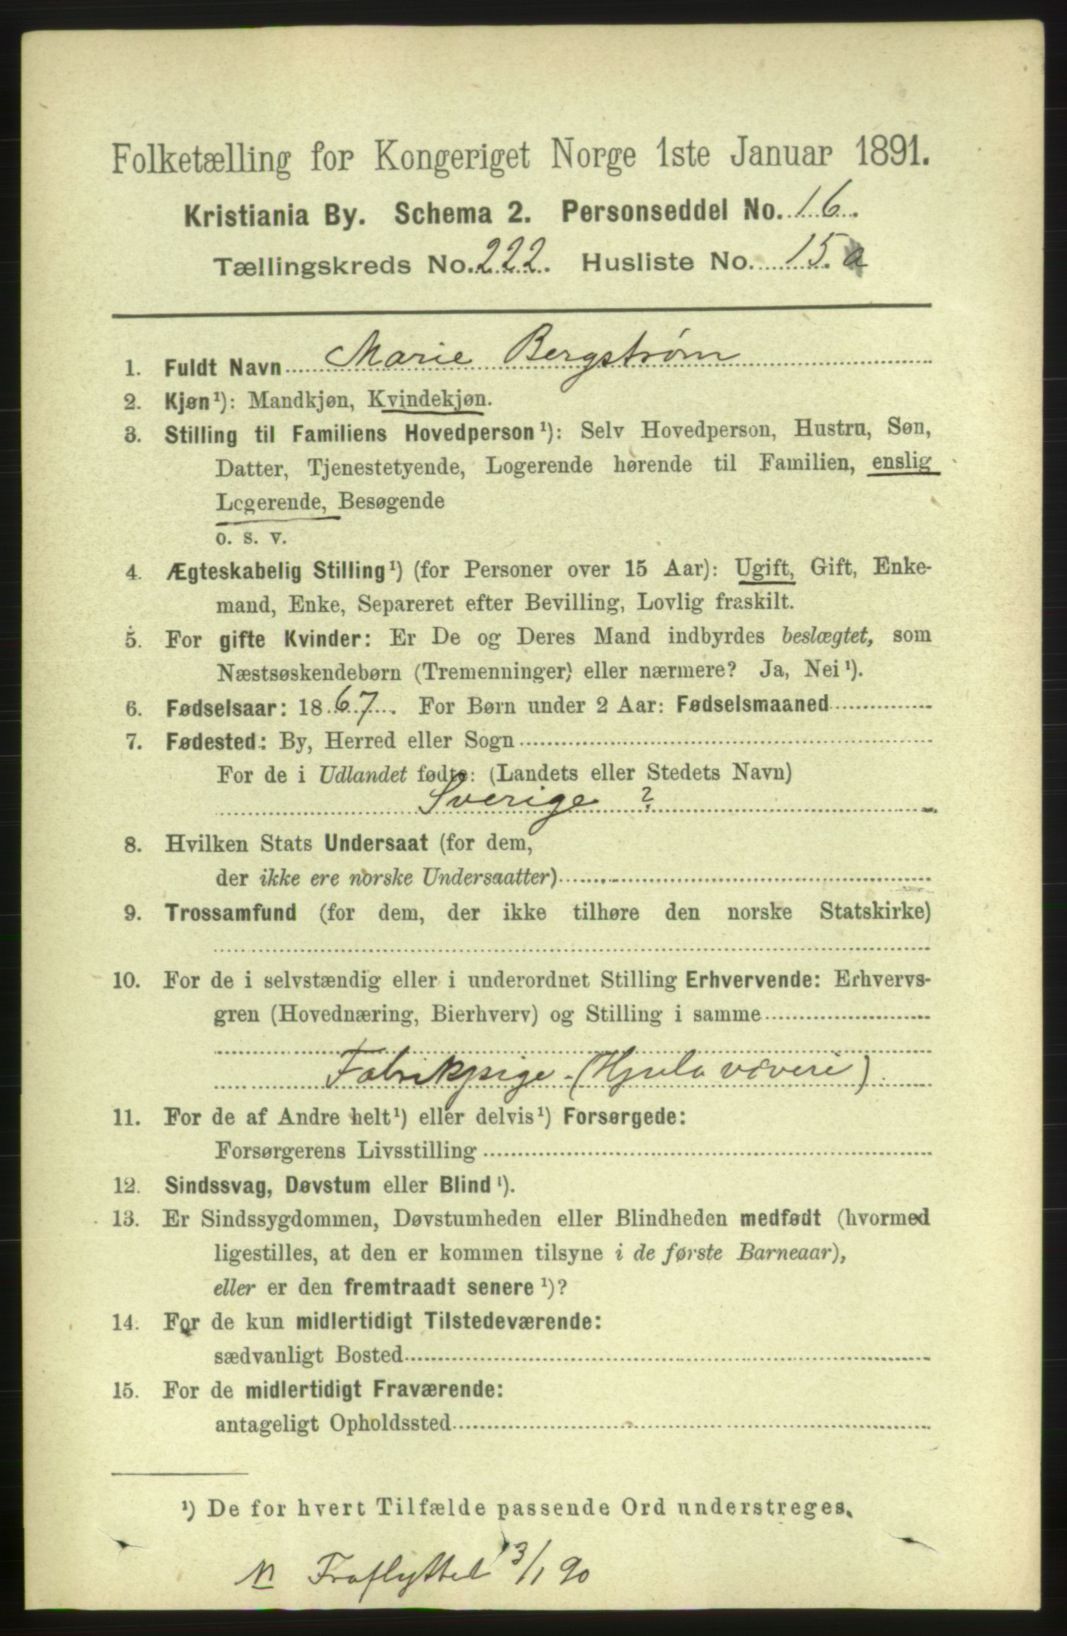 Folketælling for Kongeriget Norge 1ste Januar 1891.
Kristiania By. Schema 2. Personseddel No. 16.
Tællingskreds No. 222. Husliste No. 15. a
1. Fuldt Navn Marie Bergstrøm
2. Kjøn¹): Mandkjøn, Kvindekjøn.
3. Stilling til Familiens Hovedperson¹): Selv Hovedperson, Hustru, Søn,
Datter, Tjenestetyende, Logerende hørende til Familien, enslig
Logerende, Besøgende
o. s. v.
4. Ægteskabelig Stilling¹) (for Personer over 15 Aar): Ugift, Gift, Enke-
mand, Enke, Separeret efter Bevilling, Lovlig fraskilt.
5. For gifte Kvinder: Er De og Deres Mand indbyrdes beslægtet, som
Næstsøskendebørn (Tremenninger) eller nærmere? Ja, Nei¹).
6. Fødselsaar: 1867. For Børn under 2 Aar: Fødselsmaaned
7. Fødested: By, Herred eller Sogn
For de i Udlandet fødte: (Landets eller Stedets Navn)
Sverige ?
8. Hvilken Stats Undersaat (for dem,
der ikke ere norske Undersaatter)
9. Trossamfund (for dem, der ikke tilhøre den norske Statskirke)
10. For de i selvstændig eller i underordnet Stilling Erhvervende: Erhvervs-
gren (Hovednæring, Bierhverv) og Stilling i samme
Fabrikpige - (Hjula væveri)
11. For de af Andre helt¹) eller delvis¹) Forsørgede:
Forsørgerens Livsstilling
12. Sindssvag, Døvstum eller Blind¹).
13. Er Sindssygdommen, Døvstumheden eller Blindheden medfødt (hvormed
ligestilles, at den er kommen tilsyne i de første Barneaar),
eller er den fremtraadt senere¹)?
14. For de kun midlertidigt Tilstedeværende:
sædvanligt Bosted
15. For de midlertidigt Fraværende:
antageligt Opholdssted
¹) De for hvert Tilfælde passende Ord understreges.
Fraflyttet 3/1 90